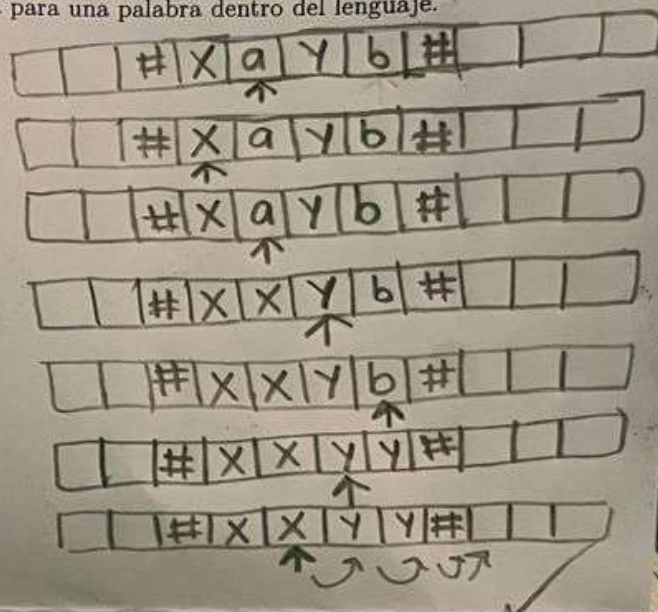 para una palabra dentro del lenguaje.
# X a Y b #
# X a Y b #
# X a Y b #
# X X Y b #
# X X Y b #
# X X Y Y #
# X X Y Y #